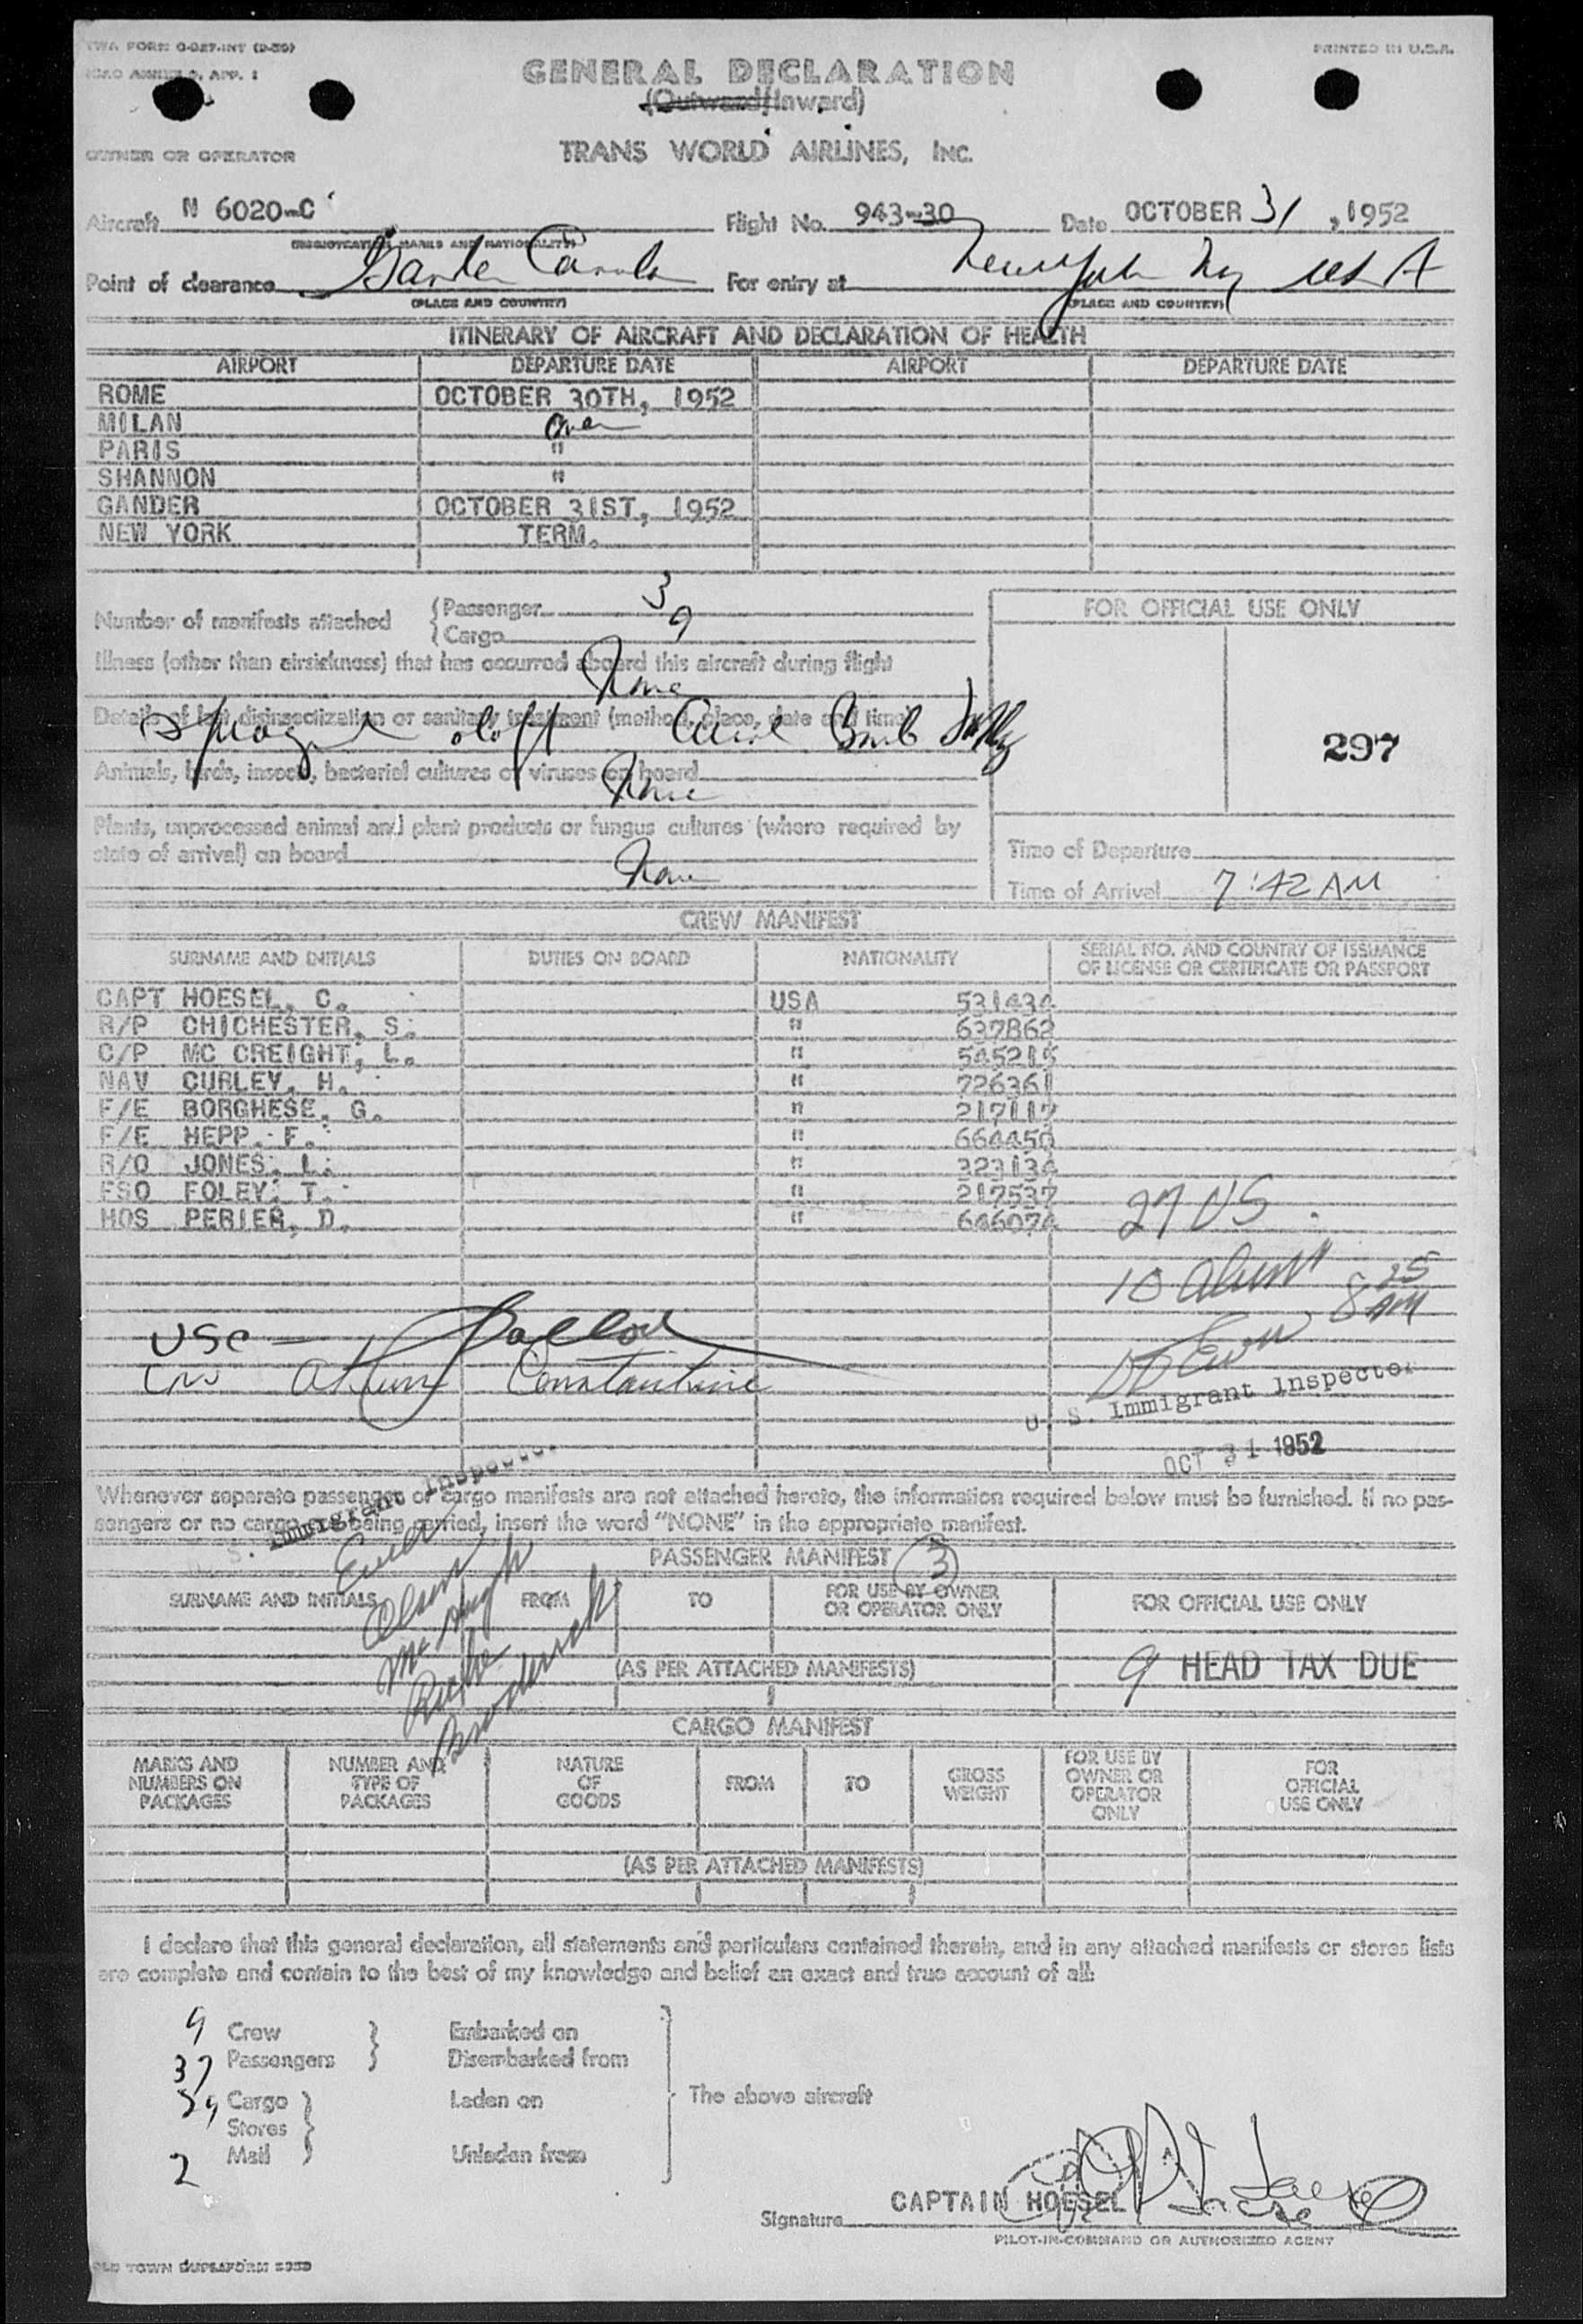 TWA FORM O-027-INT (9-50)
PRINTED IN U.S.A.
ICAO ANNEX 9, APP. 1
GENERAL DECLARATION
(Outward/Inward)
OWNER OR OPERATOR
TRANS WORLD AIRLINES, INC.
Aircraft N 6020-C Flight No. 943-30 Date OCTOBER 31, 1952
(REGISTRATION MARKS AND NATIONALITY)
Point of clearance Gander Canada For entry at New York NY USA
(PLACE AND COUNTRY) (PLACE AND COUNTRY)
ITINERARY OF AIRCRAFT AND DECLARATION OF HEALTH
AIRPORT DEPARTURE DATE AIRPORT DEPARTURE DATE
ROME OCTOBER 30TH, 1952
MILAN Over
PARIS "
SHANNON "
GANDER OCTOBER 31ST, 1952
NEW YORK TERM.
Number of manifests attached
Passenger 3
Cargo 9
FOR OFFICIAL USE ONLY
Illness (other than airsickness) that has occurred aboard this aircraft during flight
None
Details of last disinsectization or sanitary treatment (method, place, date and time)
aloft Bomb
297
Animals, birds, insects, bacterial cultures or viruses on board
None
Plants, unprocessed animal and plant products or fungus cultures (where required by
state of arrival) on board
None
Time of Departure
Time of Arrival 7:42 AM
CREW MANIFEST
SURNAME AND INITIALS DUTIES ON BOARD NATIONALITY SERIAL NO. AND COUNTRY OF ISSUANCE
OF LICENSE OR CERTIFICATE OR PASSPORT
CAPT HOESEL, C. USA 531434
R/P CHICHESTER, S. " 637862
C/P MC CREIGHT, L. " 545215
NAV CURLEY, H. " 726361
F/E BORGHESE, G. " 217117
F/E HEPP, F. " 664450
R/O JONES, L. " 323134
FSO FOLEY, T. " 217537
HOS PERIER, D. " 646074
27 US
10 Aliens
8 25 AM
USC
Constantine
U. S. Immigrant Inspector
OCT 31 1952
S. Immigrant Inspector
Whenever separate passenger or cargo manifests are not attached hereto, the information required below must be furnished. If no pas-
sengers or no cargo are being carried, insert the word "NONE" in the appropriate manifest.
Olson
McHugh
PASSENGER MANIFEST 3
SURNAME AND INITIALS FROM TO FOR USE BY OWNER
OR OPERATOR ONLY
FOR OFFICIAL USE ONLY
(AS PER ATTACHED MANIFESTS)
9 HEAD TAX DUE
CARGO MANIFEST
MARKS AND
NUMBERS ON
PACKAGES
NUMBER AND
TYPE OF
PACKAGES
NATURE
OF
GOODS
FROM
TO
GROSS
WEIGHT
FOR USE BY
OWNER OR
OPERATOR
ONLY
FOR
OFFICIAL
USE ONLY
(AS PER ATTACHED MANIFESTS)
I declare that this general declaration, all statements and particulars contained therein, and in any attached manifests or stores lists
are complete and contain to the best of my knowledge and belief an exact and true account of all:
9 Crew Embarked on
37 Passengers Disembarked from
29 Cargo Laden on
The above aircraft
Stores
2 Mail Unladen from
CAPTAIN HOESEL
Signature
PILOT-IN-COMMAND OR AUTHORIZED AGENT
OLD TOWN DUPLAFORM